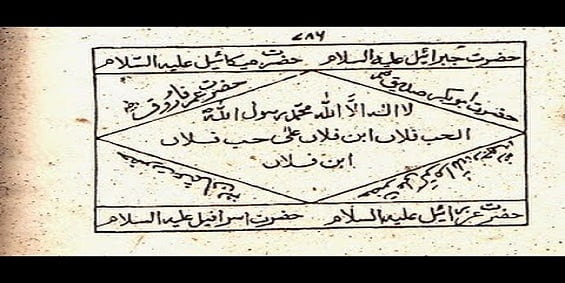 ۷۸۶
حضرت جبرائیل علیہ السلام حضرت میکائیل علیہ السلام
حضرت ابوبکر صدیق
حضرت عمر فاروق
لا الہ الا اللہ محمد رسول اللہ
الحب فلاں ابن فلاں علیٰ حب فلاں
ابن فلاں
حضرت عثمان
حضرت عزرائیل علیہ السلام حضرت اسرافیل علیہ السلام